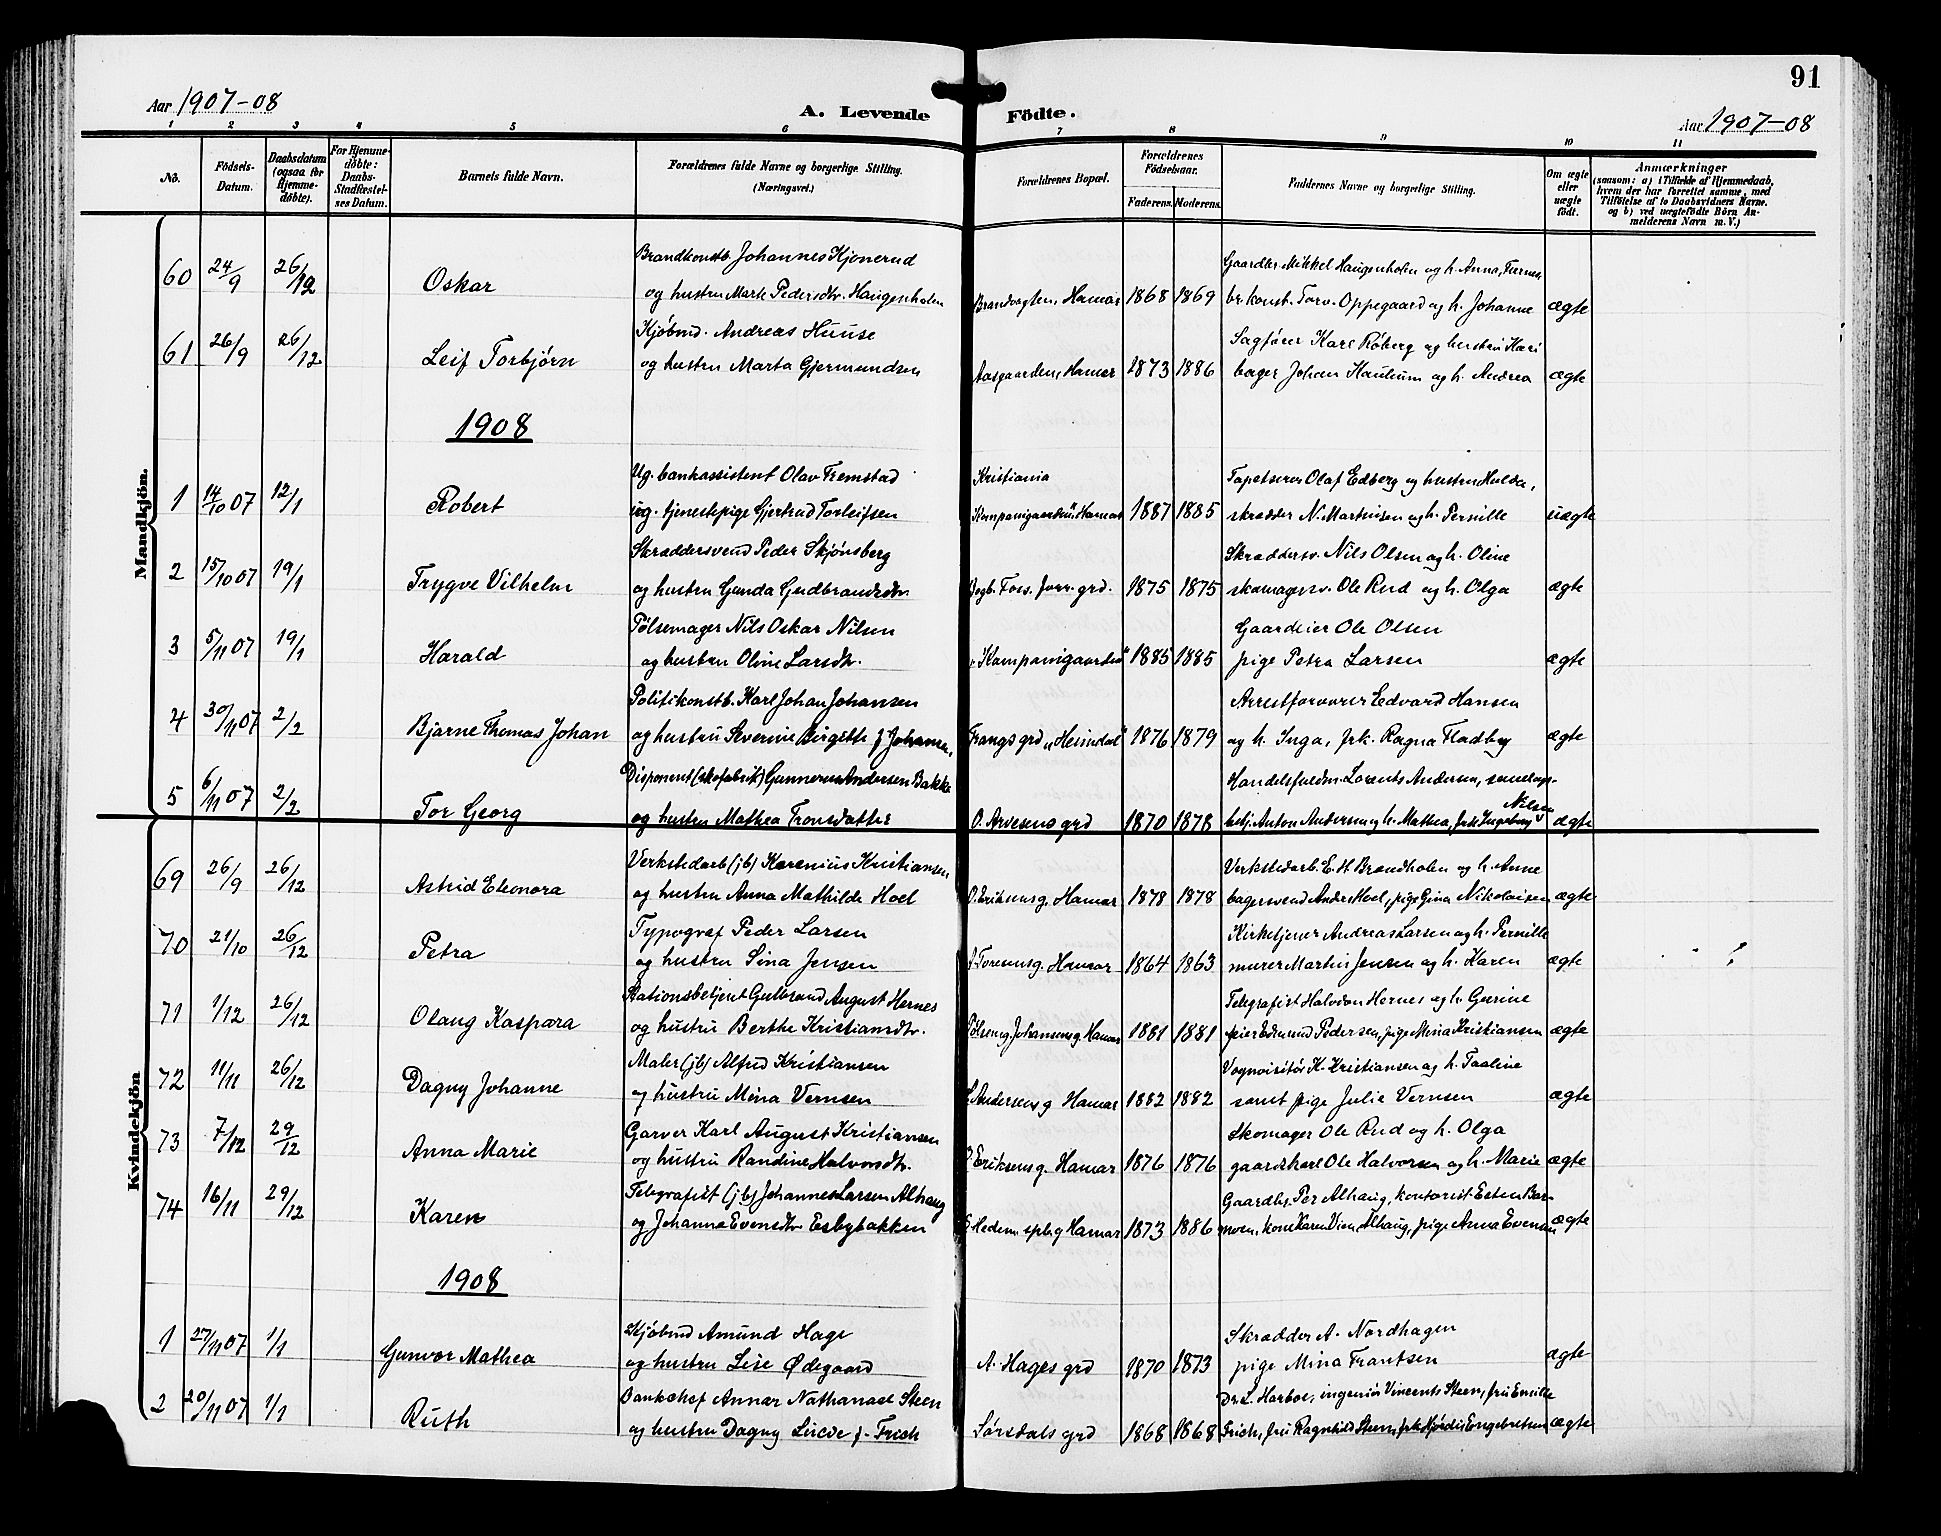 91
Aar 1907-08
A. Levende Födte.
Aar 1907-08
1 2 3 4 5 6 7 8 9 10 11
No.
Födsels-Datum.
Daabsdatum (ogsaa for Hjemmedöbte).
For Hjemmedöbte: Daabs-Stadfæstelses Datum.
Barnets fulde Navn.
Forældrenes fulde Navne og borgerlige Stilling. (Næringsvei.)
Forældrenes Bopæl.
Forældrenes Födselsaar.
Faderens. Moderens.
Faddernes Navne og borgerlige Stilling.
Om ægte eller uægte födt.
Anmærkninger
(saasom: a) i Tilfælde af Hjemmedaab, hvem der har forrettet samme, med Tilföielse af to Daabsvidners Navne. og b) ved uægtefödte Börn Anmelderens Navn m. V.)
Mandkjön.
60 24/9 26/12 Oskar
Brandkonstb. Johannes Kjønerud
og hustru Marte Pedersdtr. Haugenholen
Brandvagten, Hamar 1868 1869
Gaardbr Mikkel Haugenholen og h. Anna,
br.konst. Torv. Oppegaard og h. Johanne ægte
61 26/9 26/12 Leif Torbjørn
Kjøbmd. Andreas Huuse
og hustru Marta Gjermundsen
Aasgaarden, Hamar 1873 1886
Sagfører Karl Røberg og hustru Kari
bager Johan Haulum og h. Andrea ægte
1908
1 14/10 07 12/1 Robert
Ug. bankassistent Olav Tremstad
ug. tjenestepige Gjertrud Torleifsen
Kristiania
Kompanigaarden" Hamar 1887 1885
Tapetserer Olaf Edberg og hustru Hulda,
skrædder N. Martinsen og h. Pernille uægte
2 15/10 07 19/1 Trygve Vilhelm
Skræddersvend Peder Skjønsberg
og hustru Gunda Gudbrandsdtr
Fors. Forr. grd. 1875 1875
Skræddersv. Nils Olsen og h. Oline
skomagersv. Ole Rud og h. Olga ægte
3 5/11 07 19/1 Harald
Pølsemager Nils Oskar Nilsen
og hustru Oline Larsdtr.
"Kompanigaarden" 1885 1885
Gaardeier Ole Olsen
pige Petra Larsen ægte
4 30/11 07 2/2 Bjarne Thomas Johan
Politikonstb. Karl Johan Johansen
og hustru Severine Birgitte f Johansen
Frangs grd "Heimdal" 1876 1879
Arrestforvarer Edvard Hansen
og h. Inga, frk. Ragna Fladby ægte
5 6/11 07 2/2 Tor Georg
Disponent (skofabrik) Gunnerus Andersen Bakke
og hustru Mathea Tronsdatter
O. Arvesens grd 1870 1878
Handelsfuldm. Lorents Andersen,
betj. Anton Andersen og h. Mathea, frk Ingeborg Nilsen ægte
Kvindekjön
69 26/9 26/12 Astrid Eleonora
Verkstedarb (jb) Karenius Kristiansen
og hustru Anna Mathilde Hoel
O. Eriksensg. Hamar 1878 1878
Verkstedarb. E. H. Brandholen og h. Anne
bagersvend Anders Hoel, pige Gina Nikolaisen ægte
70 21/10 26/12 Petra
Typograf Peder Larsen
og hustru Sina Jensen
Toresensg. Hamar 1864 1863
Kirketjener Andreas Larsen og h. Pernille
murer Martin Jensen og h. Karen ægte
71 1/12 26/12 Olaug Kaspara
Stationsbetjent Gulbrand August Hernes
og hustru Berthe Kristiansdtr.
Johansensg. Hamar 1881 1881
Telegrafist Halvdan Hernes og h. Gurine
Pedersen, pige Mina Kristiansen ægte
72 11/11 26/12 Dagny Johanne
Maler (jb) Alfred Kristiansen
og hustru Mina Vernsen
Andersensg Hamar 1882 1882
Vognvisitør K. Kristiansen og h. Paaline
samt pige Julie Vernsen ægte
73 7/12 29/12 Anna Marie
Garver Karl August Kristiansen
og hustru Randine Halvorsdtr.
O Eriksensg. Hamar 1876 1876
Skomager Ole Rud og h. Olga
gaardskarl Ole Halvorsen og h. Marie ægte
74 16/11 29/12 Karen
Telegrafist (jb) Johannes Larsen Alhaug
og Johanna Evensdtr Esbybakken
Hedem. spb.g Hamar 1873 1886
Gaardbr. Per Alhaug, kontorist Esten Bar-
moen, kone Karen Vien, Alhaug, pige Anna Evensen ægte
1908
1 27/11 07 1/1 Gunvor Mathea
Kjøbmd Amund Hage
og hustru Lise Ødegaard
A. Hages grd 1870 1873
Skrædder A. Nordhagen
pige Mina Frantsen ægte
2 20/11 07 1/1 Ruth
Bankchef Annar Nathanael Steen
og hustru Dagny Lucie f. Frich
Sørsdals grd 1868 1868
Dr. L. Harboe, ingeniør Vincents Steen, fru Emilie
Frich, fru Ragnhild Steen, frk Hjørdis Engebretsen ægte